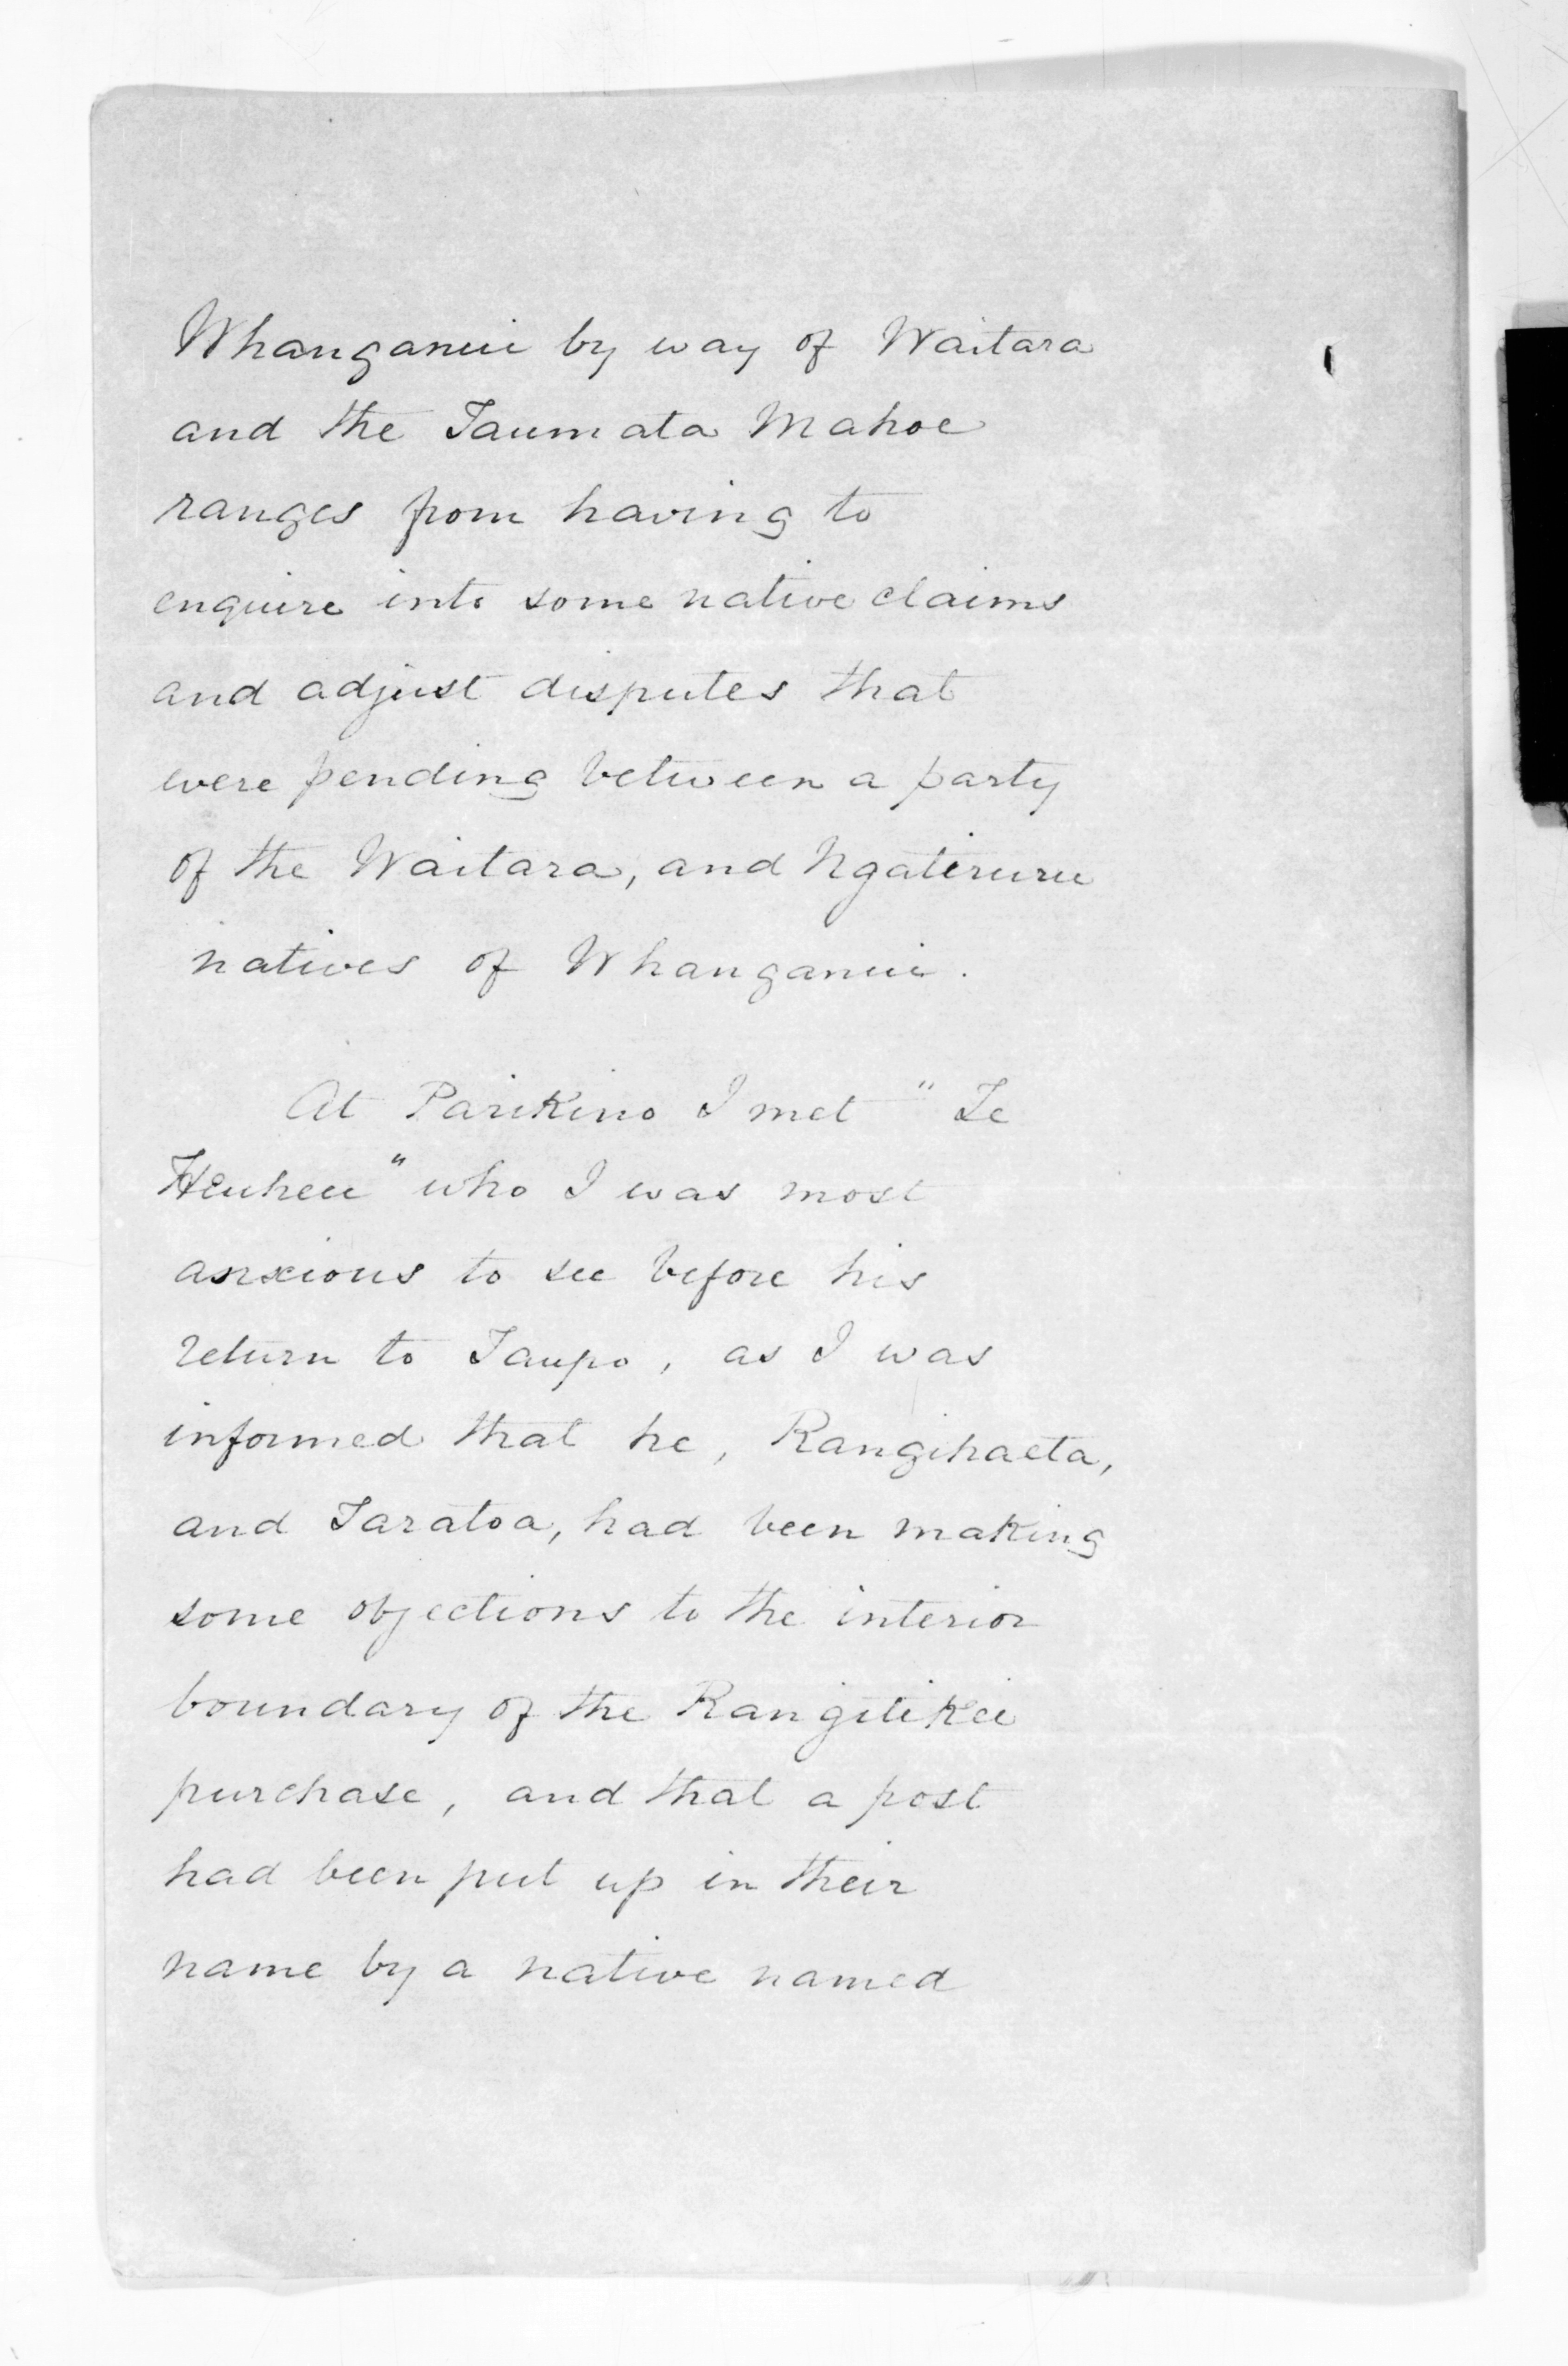 Whanganui by way of Waitara
and the Taumata Mahoe
ranges from having to
enquire into some native claims
and adjust disputes that
were pending between a party
of the Waitara, and Ngatiruru
natives of Whanganui.
At Parikino I met "Te
Heuheu" who I was most
anxious to see before his
return to Taupo, as I was
informed that he, Rangihaeta,
and Taratoa, had been making
some objections to the interior
boundary of the Rangitikei
purchase, and that a post
had been put up in their
name by a native named